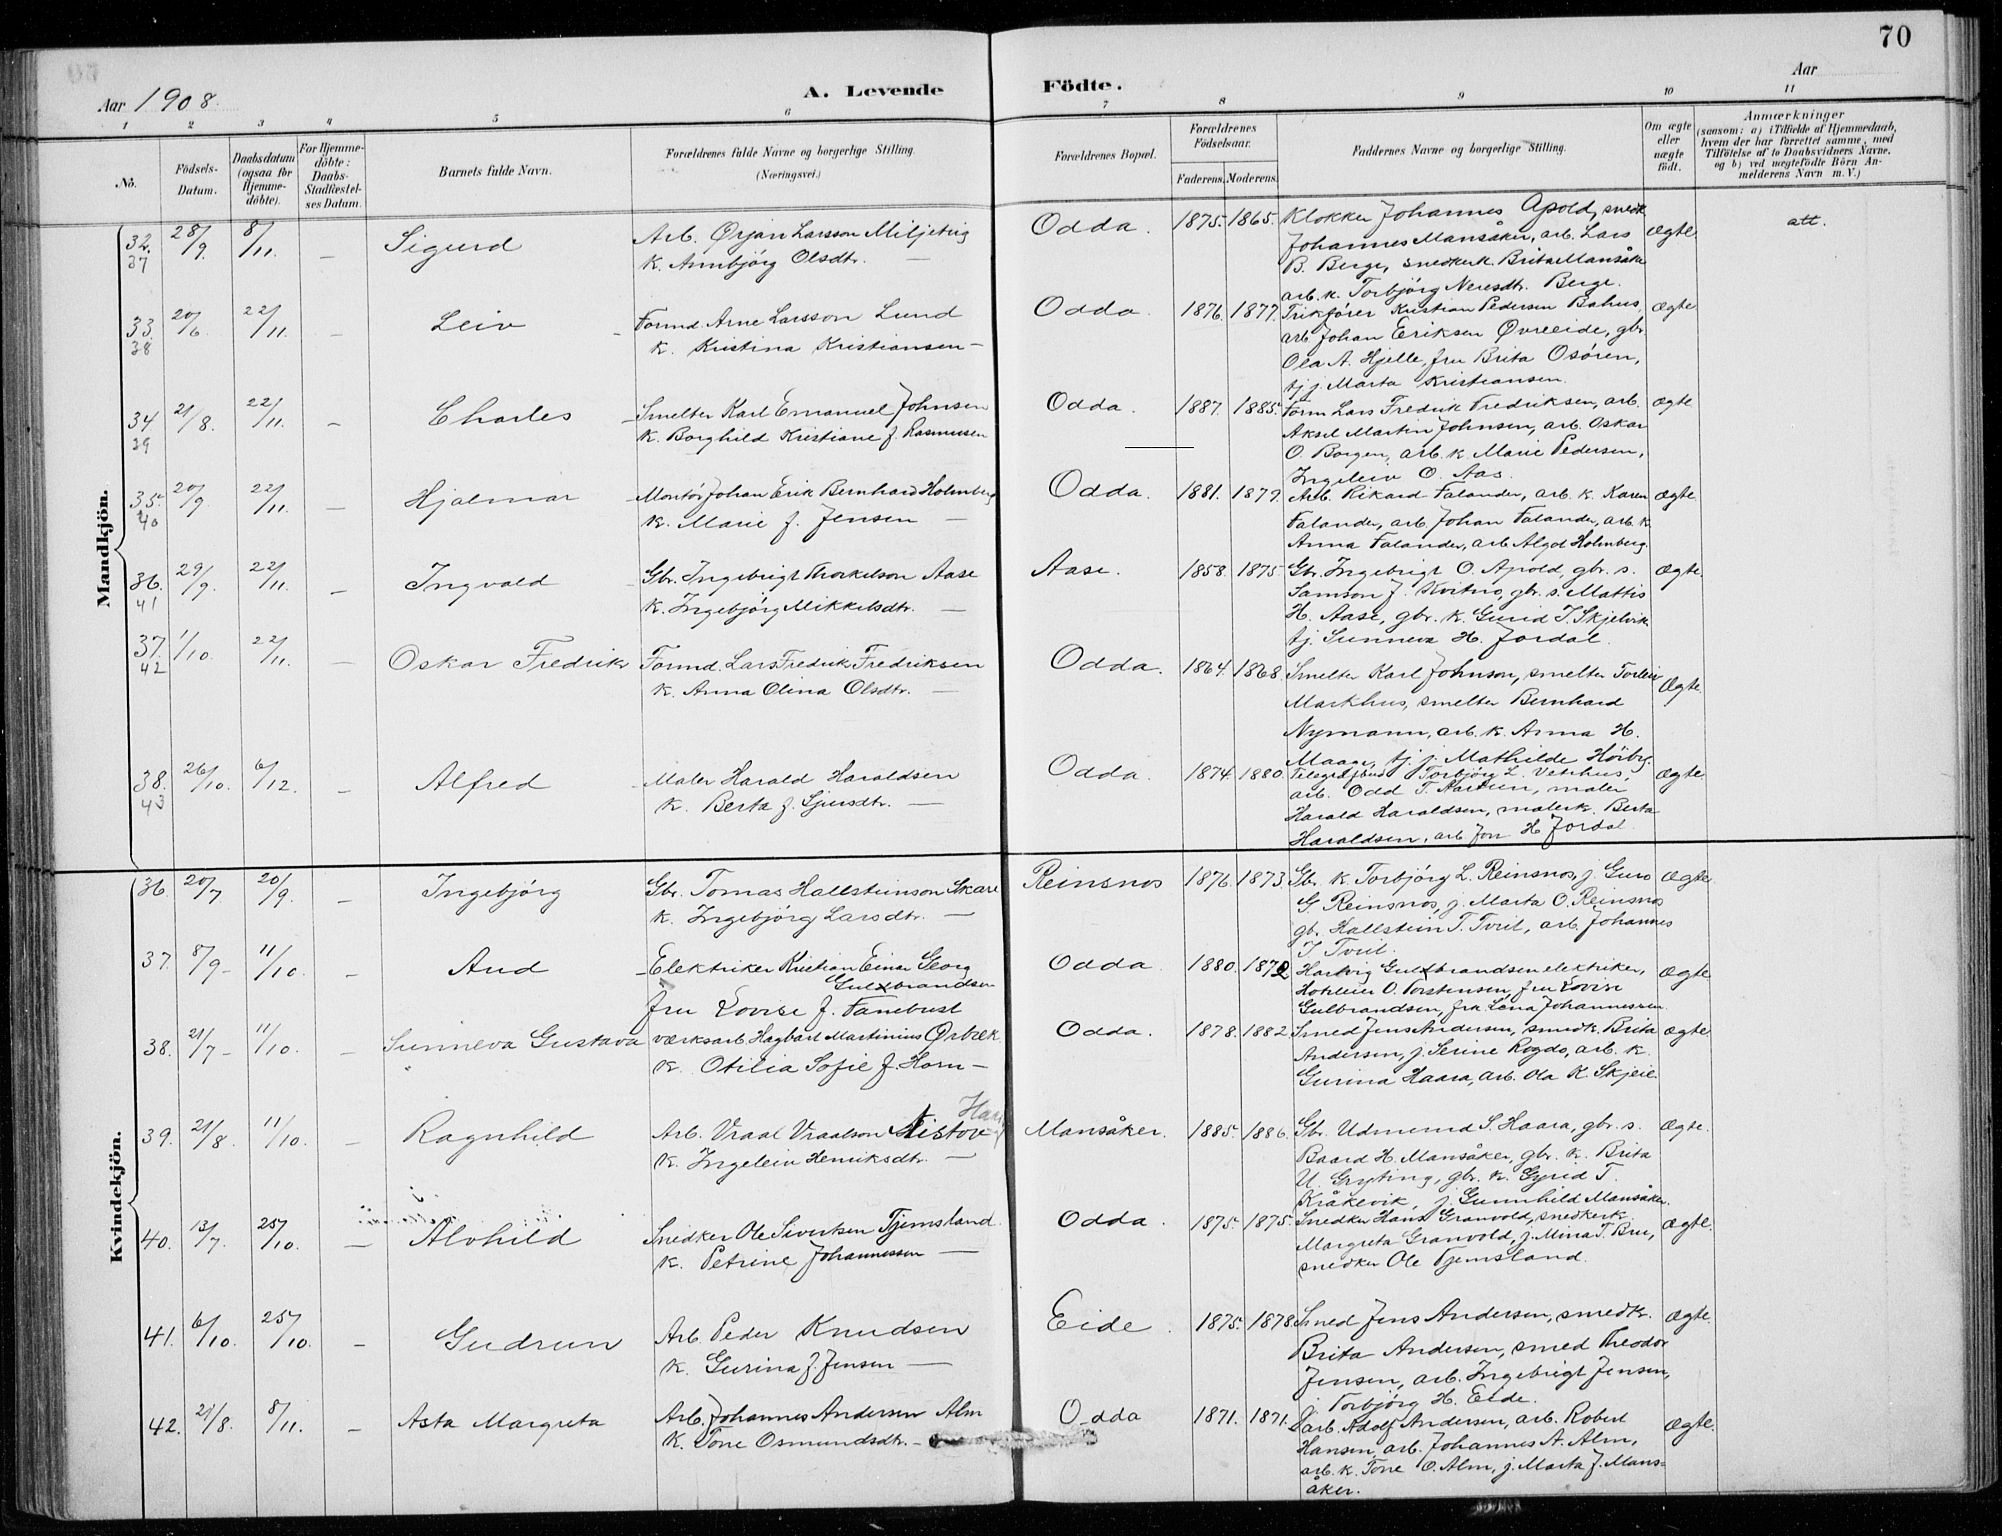 70
Aar 1908.
A. Levende Födte.
Aar
1 2 3 4 5 6 7 8 9 10 11
No.
Födsels-Datum.
Daabsdatum (ogsaa for Hjemme-döbte).
For Hjemme-döbte: Daabs-Stadfæstel-ses Datum.
Barnets fulde Navn.
Forældrenes fulde Navne og borgerlige Stilling. (Næringsvei.)
Forældrenes Bopæl.
Forældrenes Födselsaar.
Faderens. Moderens.
Faddernes Navne og borgerlige Stilling.
Om ægte eller uægte födt.
Anmærkninger
(saasom: a) i Tilfælde af Hjemmedaab, hvem der har forrettet samme, med Tilföielse af to Daabsvidners Navne. og b) ved uægtefödte Börn An-melderens Navn m. V.)
Mandkjön.
32. 37 28/9 8/11. – Sigurd
Arb. Ørjan Larsson Miljeteig
K. Annbjörg Olsdtr. —
Odda. 1875. 1865. Klokker Johannes Apold, smedk
Johannes Mansåker, arb. Lars
B. Berge, snedkerk. Brita Mansåker
arb. k. Torbjörg Neresdtr. Berge.
Ægte. att.
33. 38 20/6 22/11. – Leiv
Formd. Arne Larsson Lund
k. Kristina Kristiansen –
Odda 1876. 1877. Trikförer Kristian Pedersen Bahus,
arb Johan Eriksen Øvreeide, gbr.
Ola A. Hjelle, fru Brita Osören,
tj j. Marta Kristiansen.
Ægte
34 39 21/8. 22/11. – Charles
Smelter Karl Emanuel Johnsen
K. Borghild Kristiane f. Rasmussen
Odda. 1887. 1885. Form Lars Fredrik Fredriksen, arb.
Aksel Martin Johnsen, arb. Oskar
O. Borgen, arb. k. Marie Pedersen,
Ingeleiv O. Aas.
Ægte
35. 40 20/9 22/11. – Hjalmar
Montör Johan Erik Bernhard Holmberg
K. Marie f. Jensen –
Odda. 1881. 1879. Arb. Rikard Falander, arb. k. Karen
Falander, arb. Johan Falander, arb. k.
Anna Falander, arb Algot Holmberg.
Ægte
36. 41 29/9. 22/11. – Ingvald
Gbr. Ingebrigt Thorkelson Aase
K. Ingebjörg Mikkelsdtr. —
Aase. 1858. 1875 Gbr. Ingebrigt O. Apold, gbr. s.
Samson J. Kvitno, gbr. s. Mattis
H. Aase, gbr. k. Gurid T. Skjelvik
tj. Sunneva H. Jordal.
Ægte.
37. 42 1/10. 22/11. – Oskar Fredrik
Formd. Lars Fredrik Fredriksen
K. Anna Olina Olsdtr. —
Odda. 1864. 1868 Smelter Karl Johnson, smelter Torleiv
Markhus, smelter Bernhard
Nymann, arb. k. Anna H.
Maage, tj. j. Mathilde Hörbye
Ægte.
38. 43 26/10. 6/12. – Alfred
Maler Harald Haraldsen
K. Berta f. Sjursdtr. —
Odda. 1874. 1880. Telegrafbud Torbjörg L. Vetrhus,
arb. Odd T. Aartun, maler
Harald Haraldsen, malerk. Berta
Haraldsen, arb. Jon H Jordal.
Ægte
Kvindekjön.
36. 20/7 20/9. – Ingebjörg
Gbr. Tomas Hallsteinson Skare
K. Ingebjörg Larsdtr. —
Reinsnos 1876. 1873. Gbr. k. Torbjörg L. Reinsnos, j. Guro
G. Reinsnos, j. Marta O. Reinsnos
gbr. Hallstein T. Tveit, arb. Johannes
T Tveit.
Ægte
37. 8/9 – 11/10. – Aud
Elektriker Kristian Einar Georg
Gulbrandsen
fru Lovise f. Fanebust
Odda 1880. 1872 Hartvig Gulbrandsen elektriker,
Hoteleier O. Torstensen, fru Lovise
Gulbrandsen, frk. Lena Johannessen
Ægte
38. 21/7 – 11/10. – Sunneva Gustava
værksarb. Hagbart Martinius Ørbæk
K. Otilia Sofie f Horn –
Odda. 1878. 1882 Smed Jens Andersen, smedk. Brita
Andersen, j. Serine Rogdo, arb. k.
Gurina Haara, arb. Ola K. Skjeie.
Ægte.
39. 21/8. 11/10. – Ragnhild
Arb. Vraal Vraalson Nistov
K. Ingeleiv Henriksdtr. —
Mansåker. 1885. 1886. Gbr. Udmund S. Haara, gbr. s.
Baard H. Mansåker, gbr. k. Brita
U. Gryting, gbr. k. Gyrid T.
Kråkevik, j. Gunnhild Mansåker.
Ægte.
40. 13/7. 25/10. – Alvhild
Snedker Ole Sivertsen Tjemsland
K. Petrine Johannessen —
Odda. 1875. 1875. Snedker Hans Granvold, snedkerk.
Margreta Granvold, j. Mina T. Bru,
snedker Ole Tjemsland.
Ægte.
41. 6/10. 25/10. – Gudrun
Arb. Peder Knudsen
K. Gurina f. Jensen —
Eide. 1875. 1878. Smed Jens Andersen, smedk.
Brita Andersen, smed Theodor
Jensen, arb. Ingebrigt Jensen,
j. Torbjörg H. Eide.
Ægte.
42. 21/8. 8/11. – Asta Margreta
Arb. Johannes Andersen Alm
K. Tone Osmundsdtr. –
Odda 1871. 1871. arb. Adolf Andersen, arb. Robert
Hansen, arb. Johannes A. Alm,
arb. k. Tone O. Alm, j. Marta J. Mans=
åker.
Ægte.